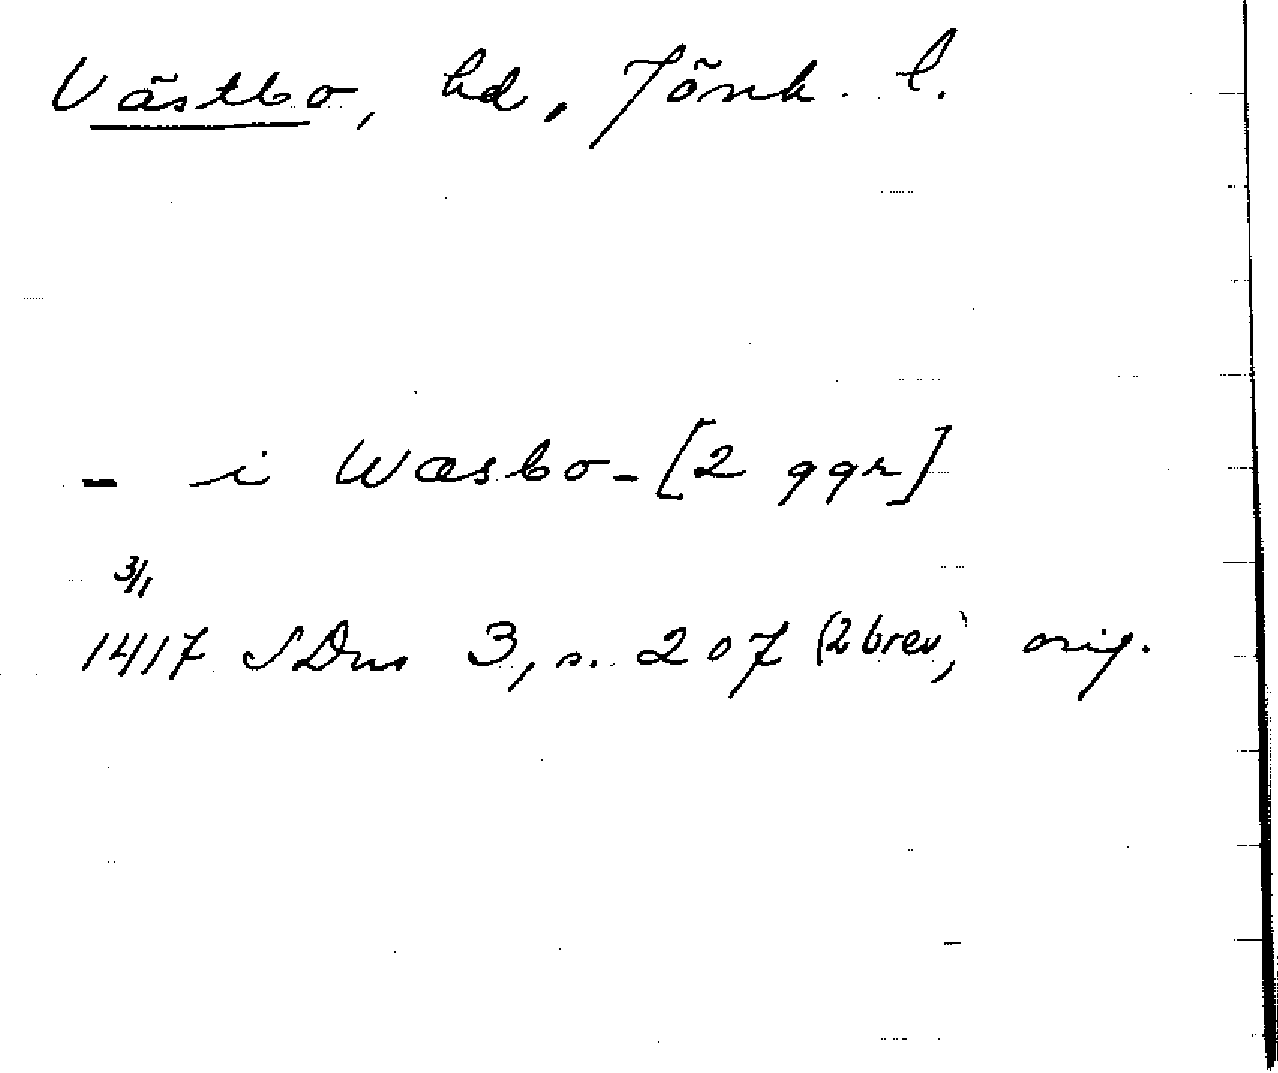 Västbo, hd, Jönk. l.
- i Wæsbo - [2 ggr]
3/1
1417 SDns 3, s. 207 (2 brev), orig.